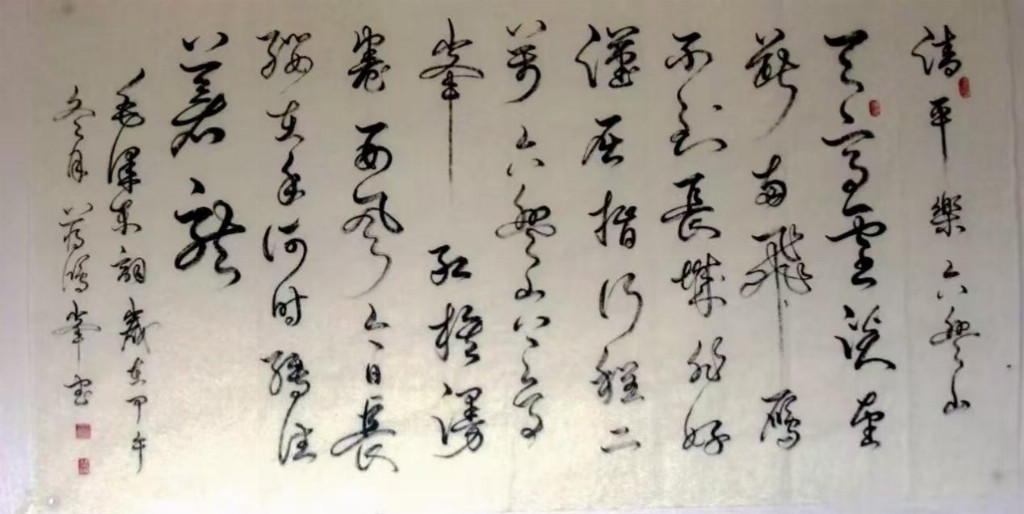 清平樂 六盤山
天高雲淡望
斷南飛 雁
不到長城非好
漢屈指行程二
萬 六盤山上高
峯 紅旗漫
卷西風今日長
纓在手何时縛住
蒼龍
毛澤東詞 歲在甲午
冬月 峯書